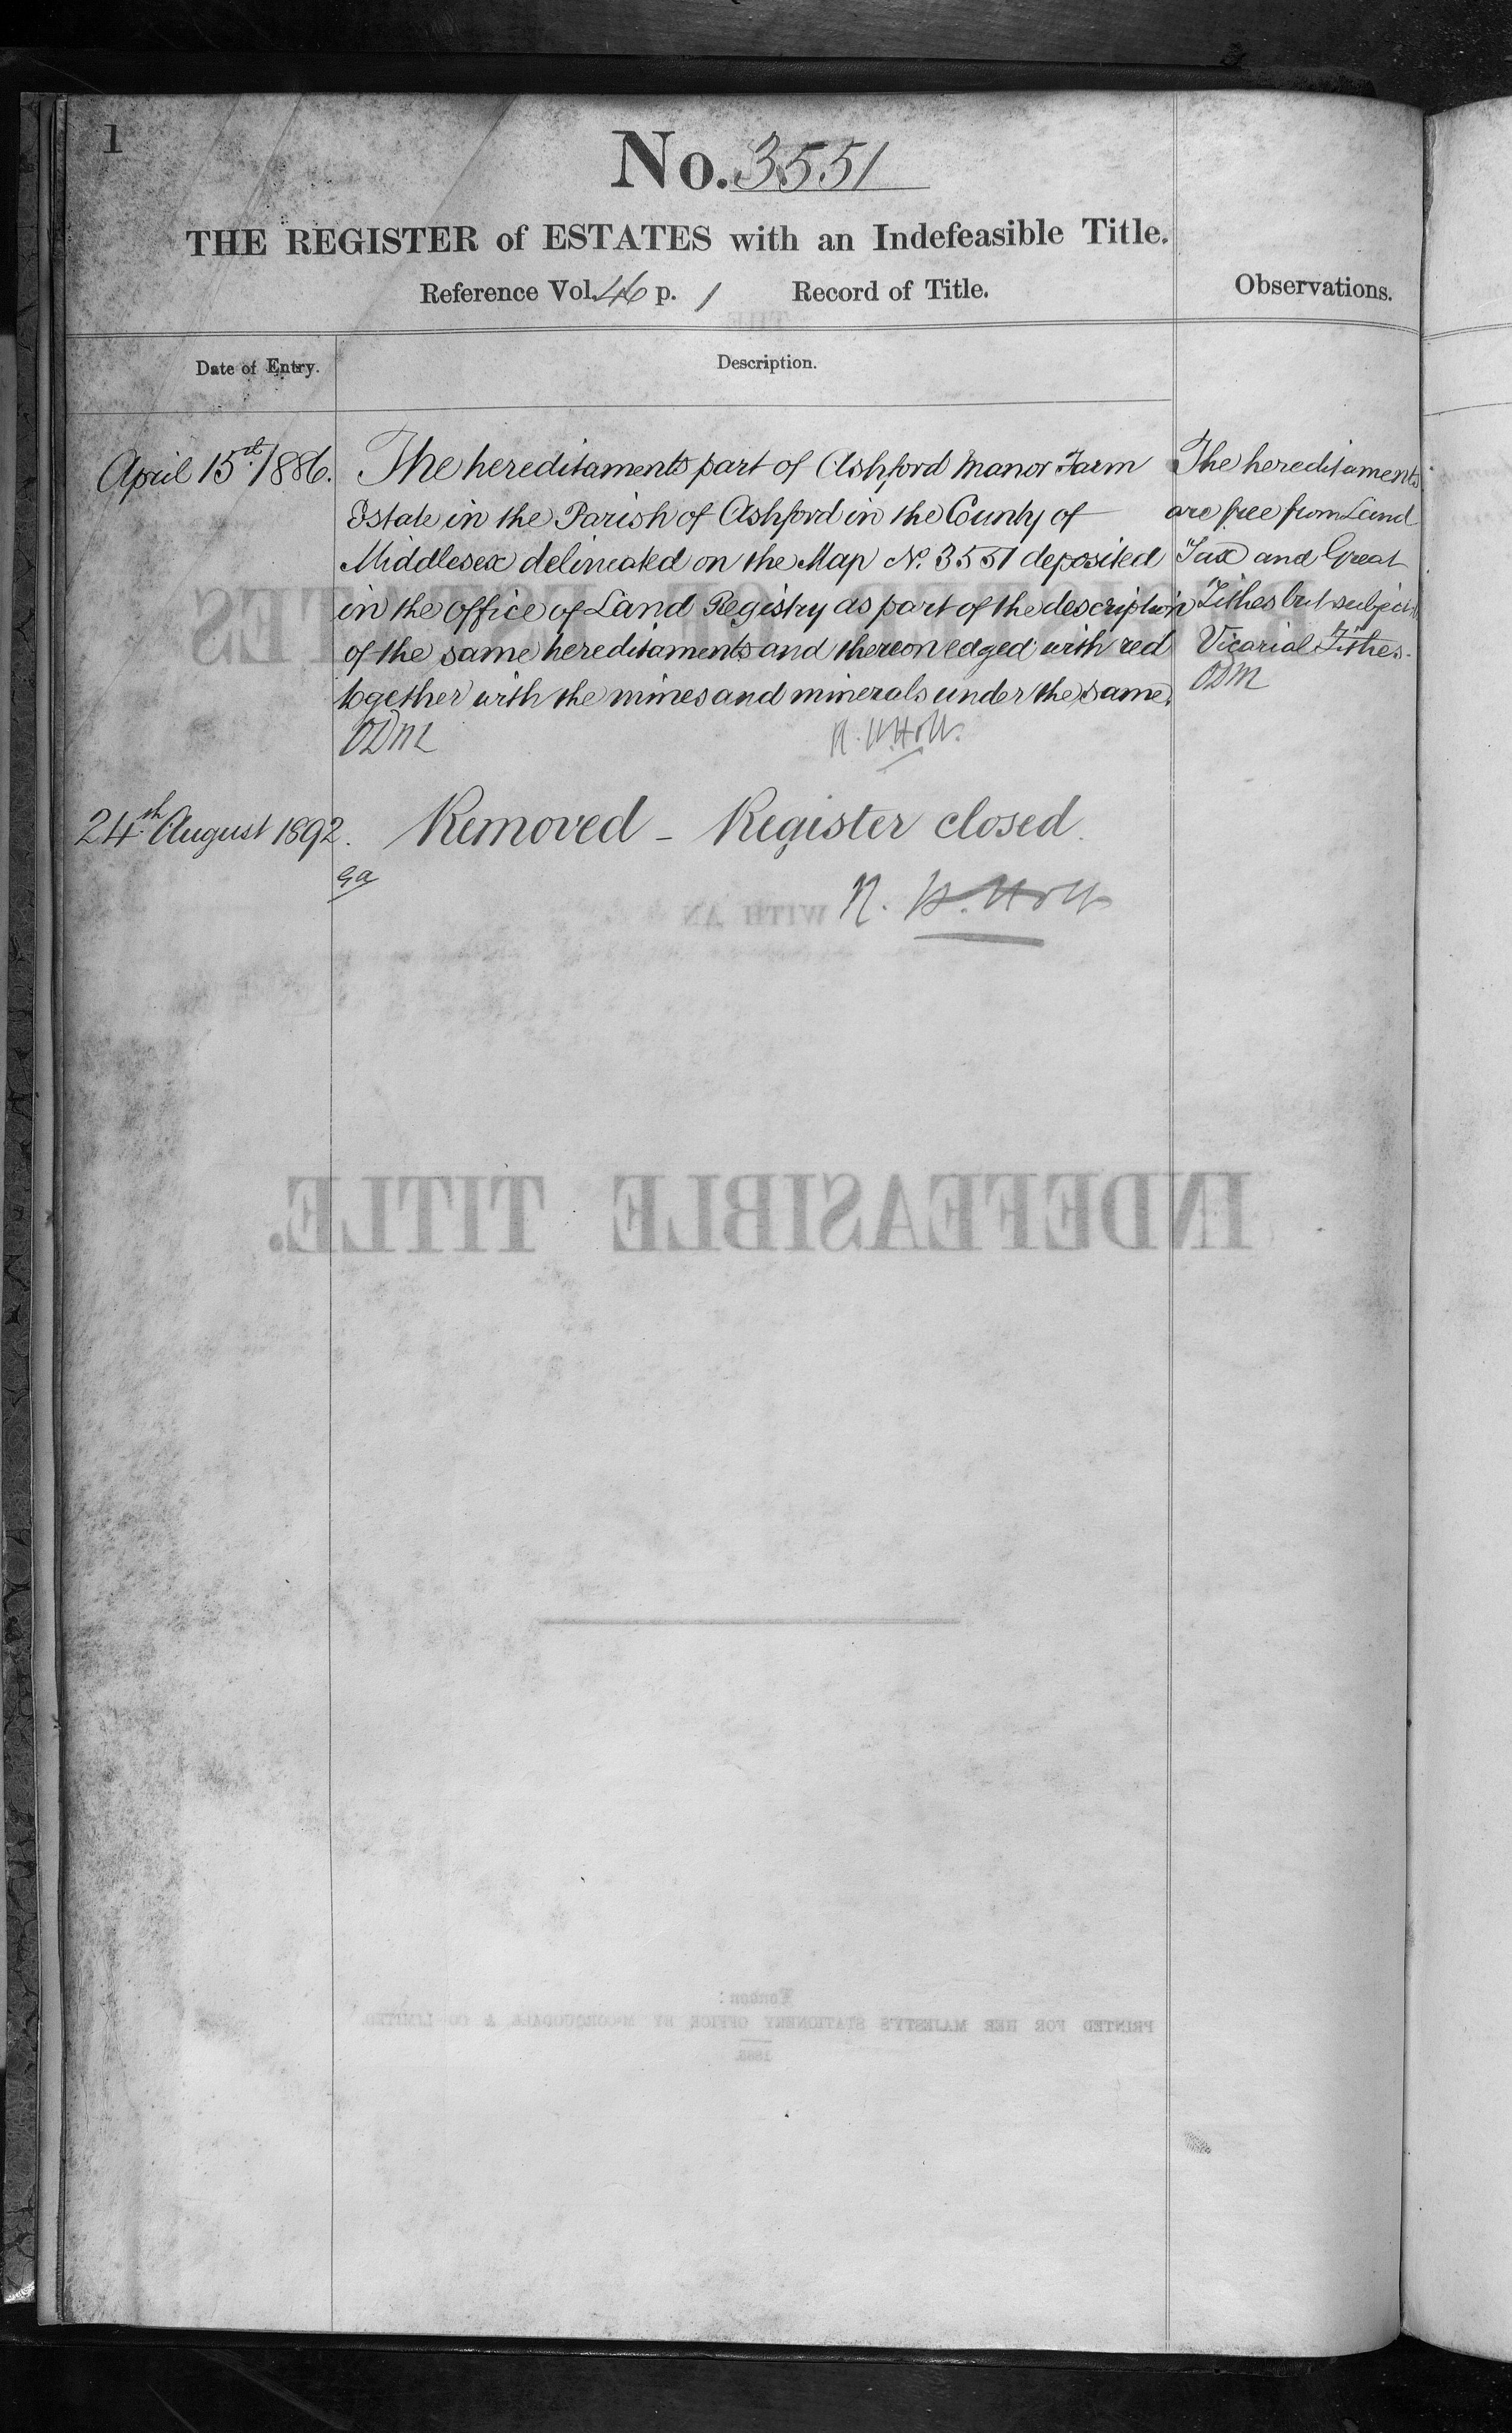 1
No. 3551
THE REGISTER of ESTATES with an Indefeasible Title.
Reference Vol. 46 p. 1 Record of Title.
Observations.
Date of Entry.
Description.
April 15th 1886.
The hereditaments part of Ashford Manor Farm
Estate in the Parish of Ashford in the County of
Middlesex delineated on the Map No. 3551 deposited
in the office of Land Registry as part of the description
of the same hereditaments and thereon edged with red
together with the mines and minerals under the same.
ODM
The hereditaments
are free from Land
Tax and Great
Tithes but subject to
Vicarial Tithes.
ODM
24th August 1892.
Removed - Register closed.
WITH AN
INDEFEASIBLE TITLE.
London:
PRINTED FOR HER MAJESTY'S STATIONERY OFFICE BY McCORQUODALE & CO LIMITED.